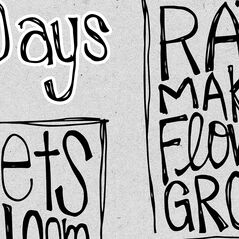 Days
ets
loom
RA
MAK
Flow
GRO